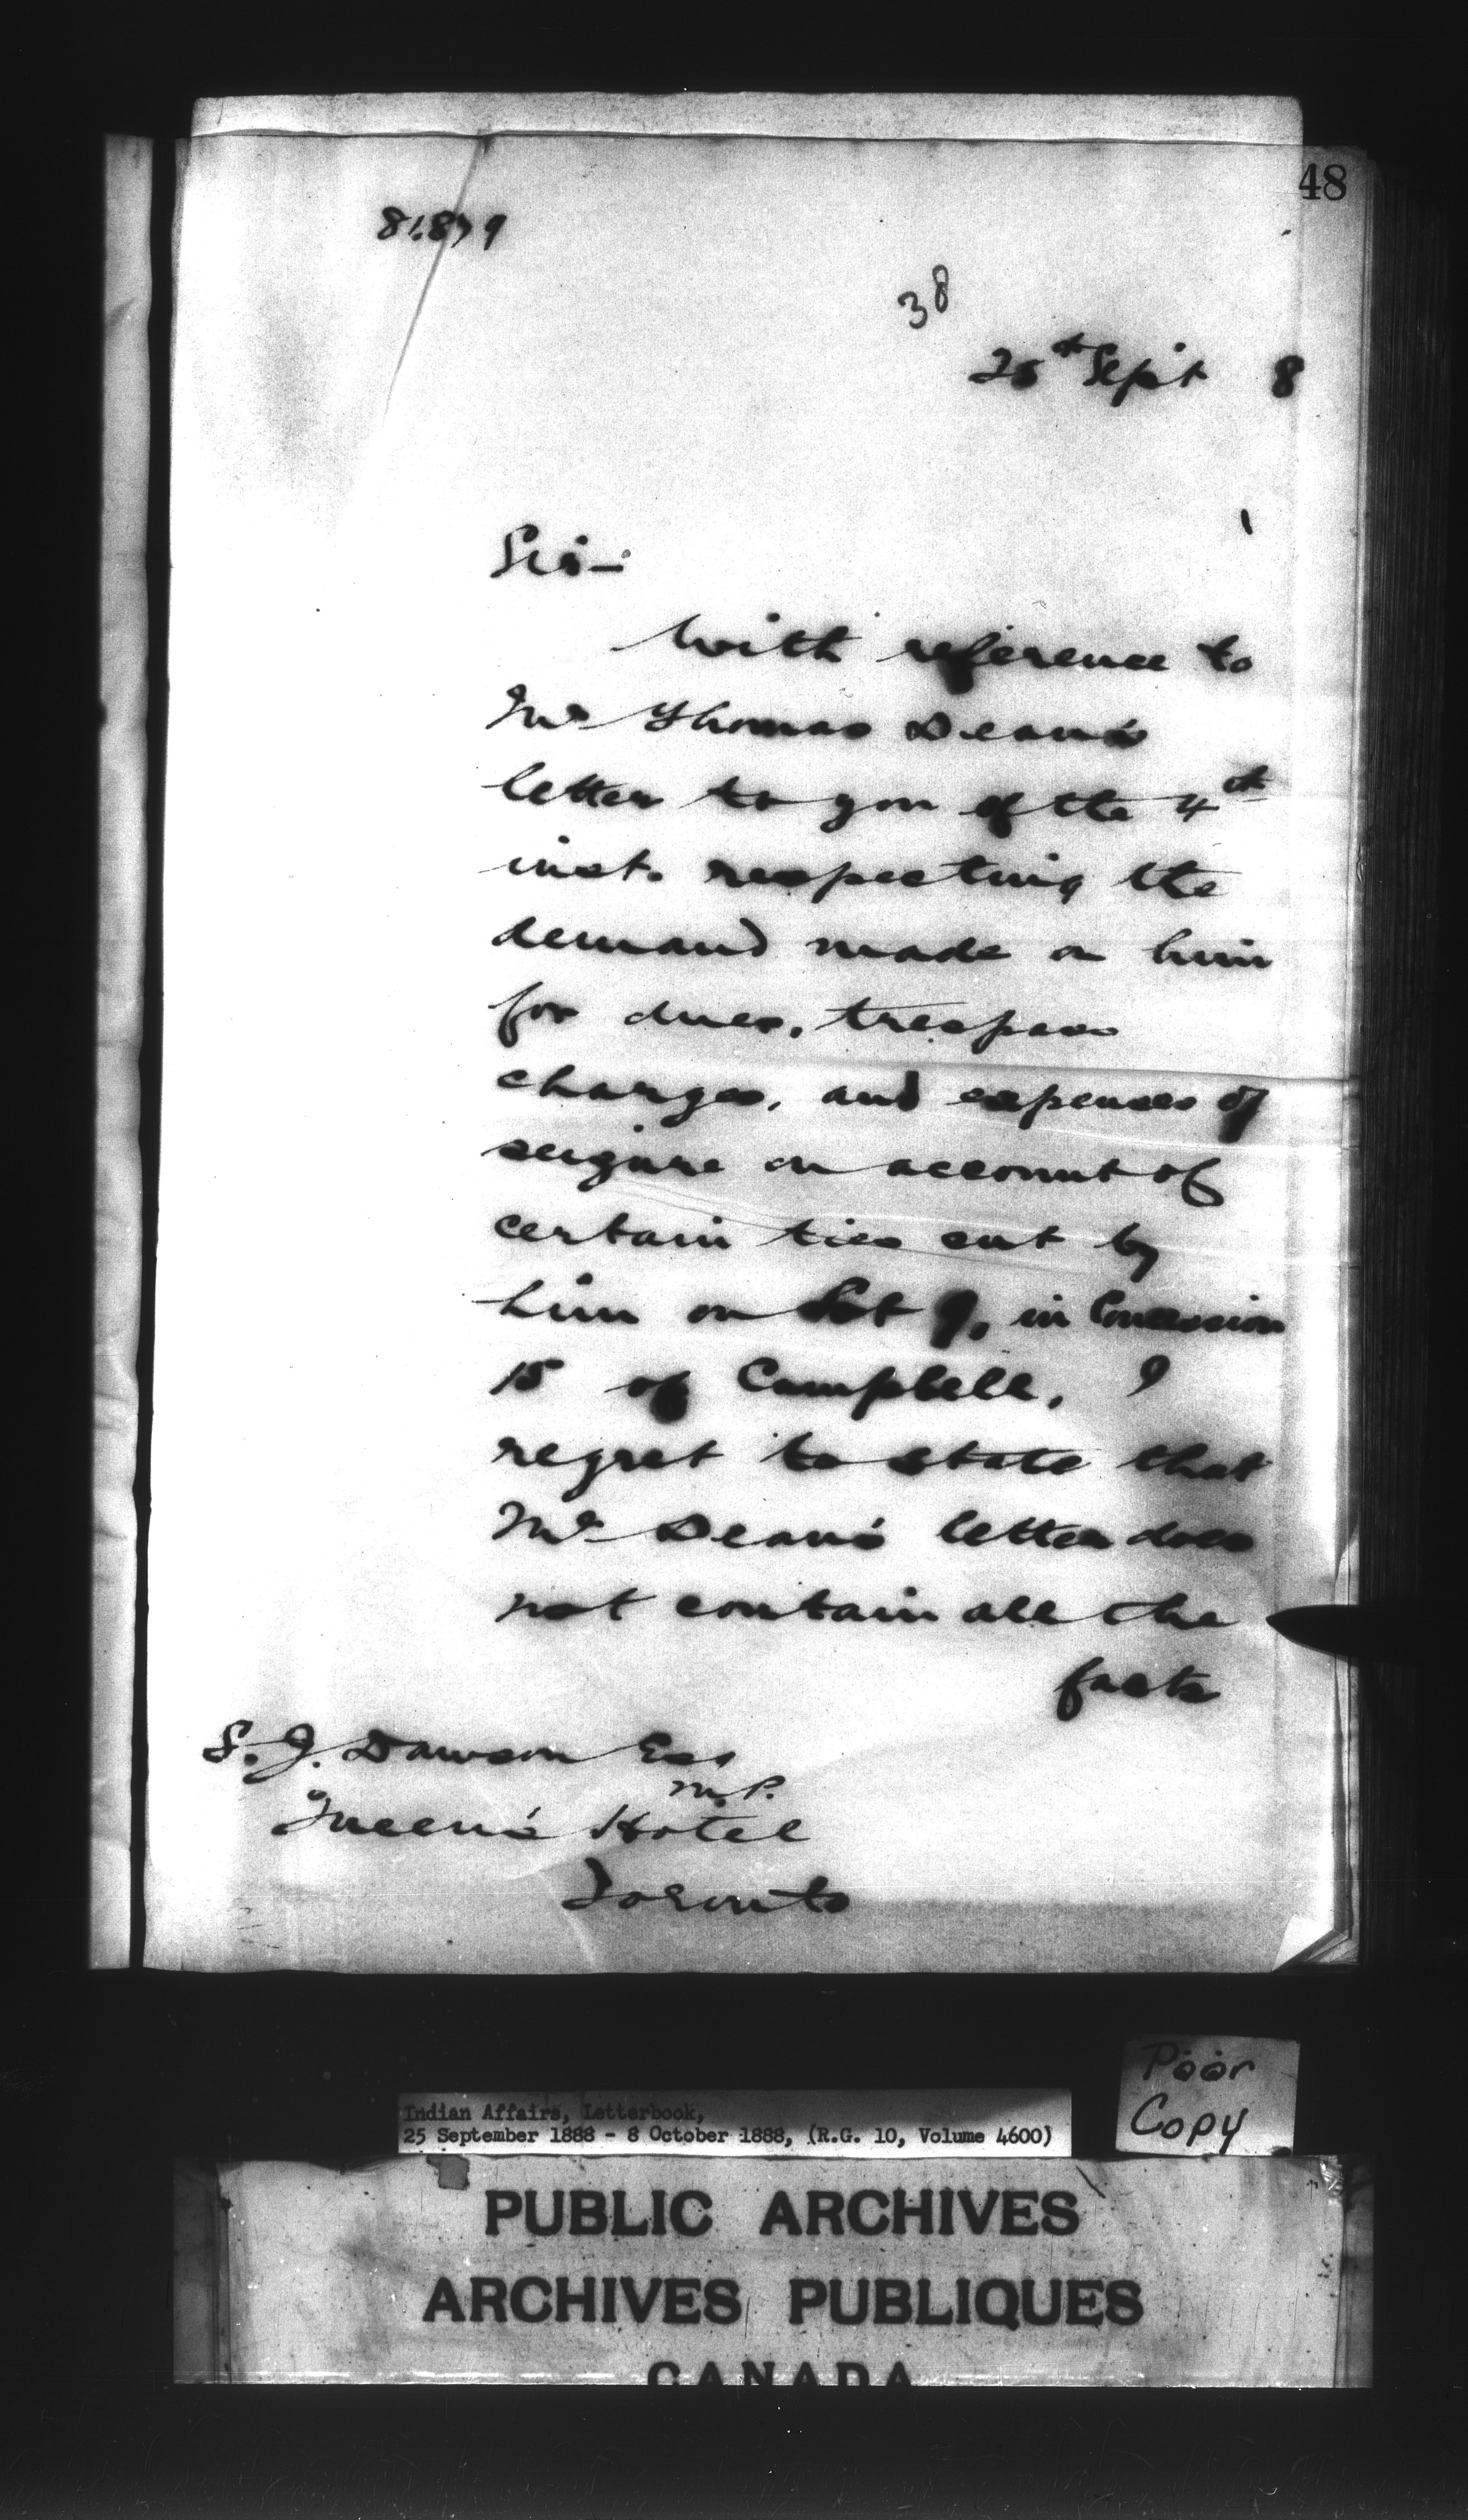 48
81.879
38
25th Sept 8
Sir–
With reference to
Mr Thomas Dean's
letter to you of the 4th
inst. respecting the
demand made on him
for dues, trespass
charges, and expenses of
seizure on account of
certain ties cut by
him on Lot 9, in Concession
15 of Campbell, I
regret to state that
Mr Dean's letter does
not contain all the
facts
S. J. Dawson Esq
M.P.
Queen's Hotel
Toronto
Poor
Copy
Indian Affairs, Letterbook,
25 September 1888 - 8 October 1888, (R.G. 10, Volume 4600)
PUBLIC ARCHIVES
ARCHIVES PUBLIQUES
CANADA